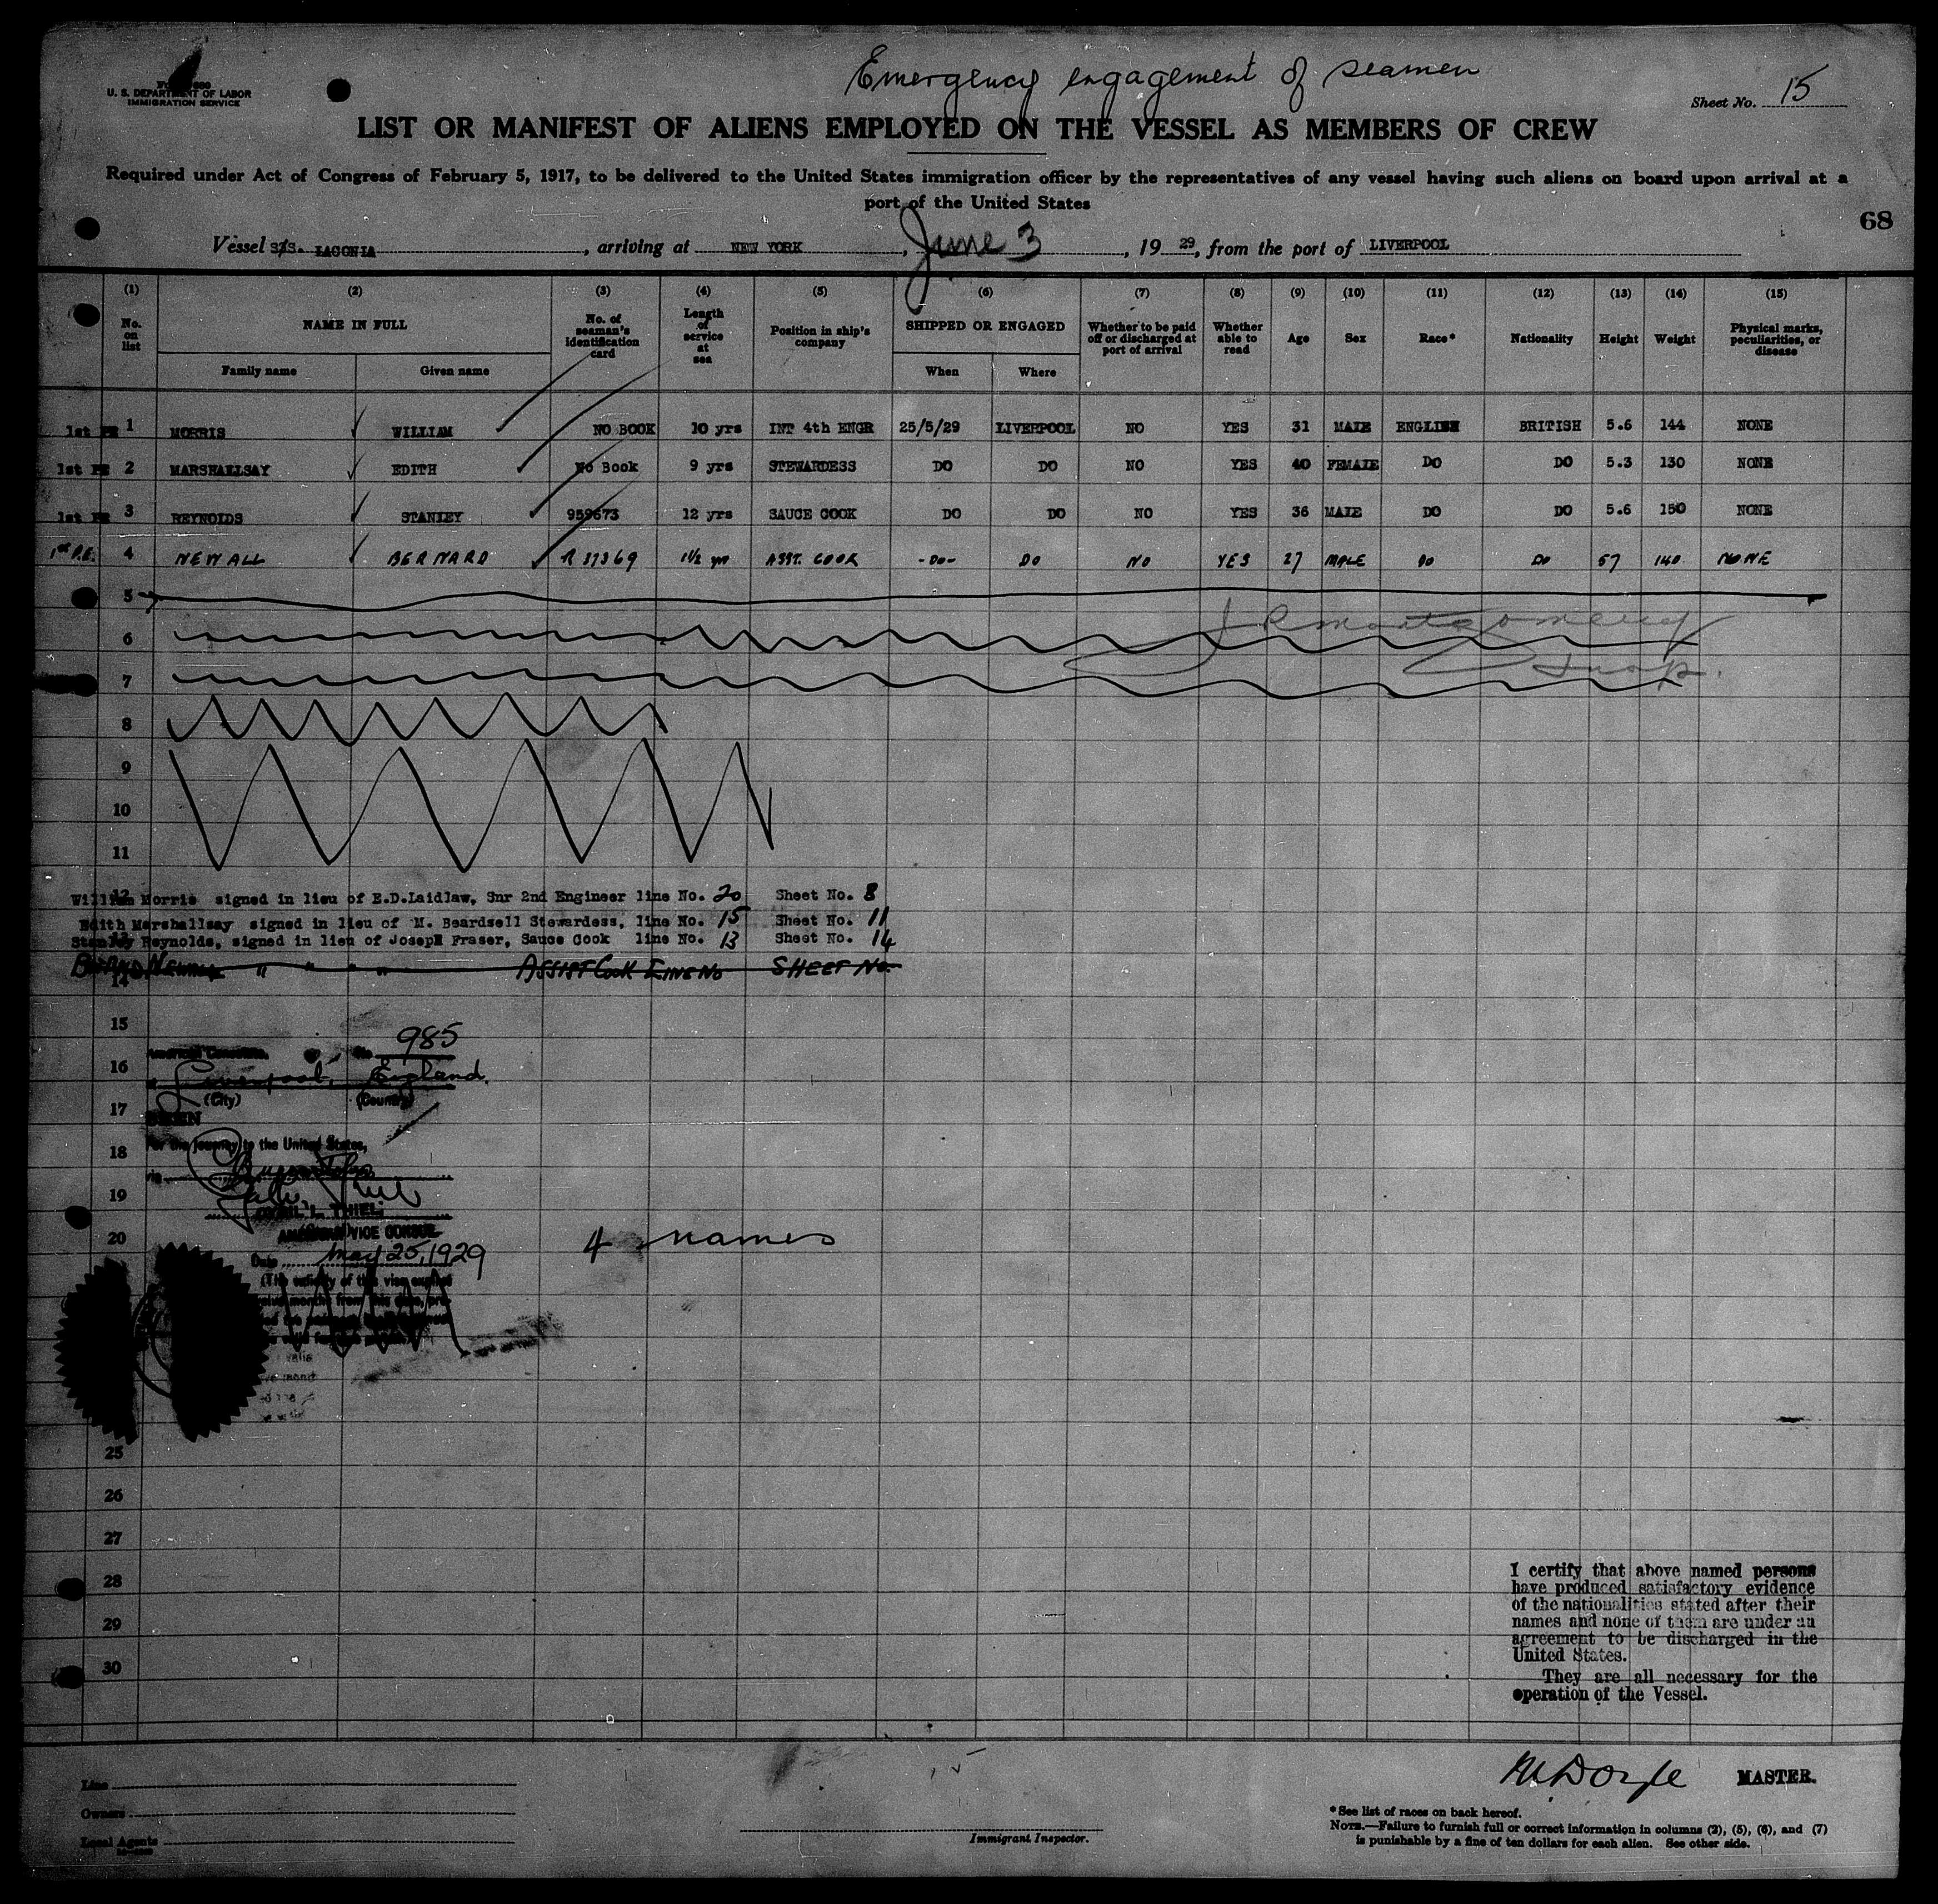 Emergency engagement of seamen
U. S. DEPARTMENT OF LABOR
IMMIGRATION SERVICE
Sheet No. 15
LIST OR MANIFEST OF ALIENS EMPLOYED ON THE VESSEL AS MEMBERS OF CREW
Required under Act of Congress of February 5, 1917, to be delivered to the United States immigration officer by the representatives of any vessel having such aliens on board upon arrival at a
port of the United States
68
Vessel S/S. LACONIA, arriving at NEW YORK, June 3, 19 29, from the port of LIVERPOOL
(1) (2) (3) (4) (5) (6) (7) (8) (9) (10) (11) (12) (13) (14) (15)
No. on list NAME IN FULL No. of seaman's identification card Length of service at sea Position in ship's company SHIPPED OR ENGAGED Whether to be paid off or discharged at port of arrival Whether able to read Age Sex Race* Nationality Height Weight Physical marks, peculiarities, or disease
Family name Given name When Where
1st PE 1 MORRIS WILLIAM NO BOOK 10 yrs INT 4th ENGR 25/5/29 LIVERPOOL NO YES 31 MALE ENGLISH BRITISH 5.6 144 NONE
1st PE 2 MARSHALLSAY EDITH No Book 9 yrs STEWARDESS DO DO NO YES 40 FEMALE DO DO 5.3 130 NONE
1st PE 3 REYNOLDS STANLEY 959673 12 yrs SAUCE COOK DO DO NO YES 36 MALE DO DO 5.6 150 NONE
1st P.E. 4 NEWALL BERNARD R 37369 1½ yrs ASST. COOK -DO- DO NO YES 27 MALE DO DO 57 140 NONE
5
J R Montgomery
6
Insp.
7
8
9
10
11
12
William Morris signed in lieu of E.D.Laidlaw, Snr 2nd Engineer line No. 20 Sheet No. 8
Edith Marshallsay signed in lieu of M. Beardsell Stewardess, line No. 15 Sheet No. 11
Stanley Reynolds, signed in lieu of Joseph Fraser, Sauce Cook line No. 13 Sheet No. 14
NEWALL " " " " ASSIST COOK LINE NO SHEET NO.
14
15
985
American Consulate, No
16
Liverpool, England.
(City) (Country)
17
SEEN
For the journey to the United States,
18
via
19
THIEL
AMERICAN VICE CONSUL
20
4 names
Date May 25, 1929
(The validity of this visa expires
25
26
27
28
29
30
I certify that above named persons
have produced satisfactory evidence
of the nationalities stated after their
names and none of them are under an
agreement to be discharged in the
United States.
They are all necessary for the
operation of the Vessel.
M. Doyle MASTER.
Line
Owners
Local Agents
Immigrant Inspector.
*See list of races on back hereof.
NOTE.—Failure to furnish full or correct information in columns (2), (5), (6), and (7)
is punishable by a fine of ten dollars for each alien. See other side.